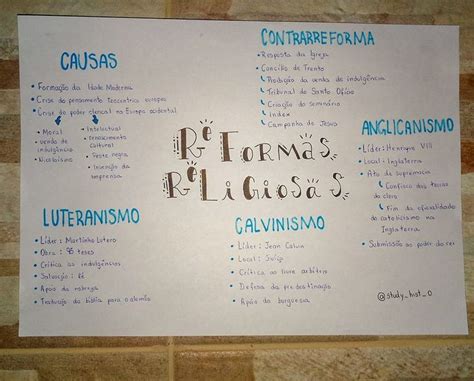 CAUSAS
• Formação da Idade Moderna
• Crise do pensamento teocêntrico europeu
• Crise do poder clerical na Europa ocidental
Moral
• venda de indulgência
• Nicolaísmo
Intelectual
• renascimento cultural
• Peste negra
• Invenção da imprensa
CONTRARREFORMA
• Resposta da Igreja
• Concílio de Trento
Proibição da venda de indulgência
Tribunal do Santo Ofício
Criação do seminário
Index
Companhia de Jesus
ReFormas
ReLigiosas
ANGLICANISMO
• Líder: Henrique VIII
• Local: Inglaterra
• Ato de supremacia
Confisco das terras do clero
Fim da oficialidade do catolicismo na Inglaterra
• Submissão ao poder do rei
LUTERANISMO
• Líder: Martinho Lutero
• Obra: 95 teses
• Crítica as indulgências
• Salvação: fé
• Apoio da nobreza
• Tradução da bíblia para o alemão
CALVINISMO
• Líder: Jean Calvin
• Local: Suíça
• Crítica ao livre arbítrio
• Defesa da predestinação
• Apoio da burguesia
@study_hist_0